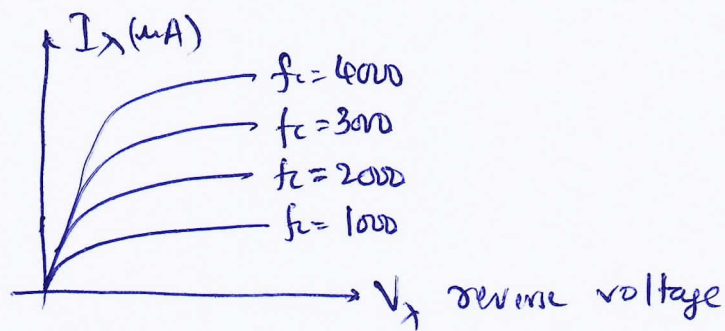 I_λ (μA)
fc = 4000
fc = 3000
fc = 2000
fc = 1000
V_λ reverse voltage